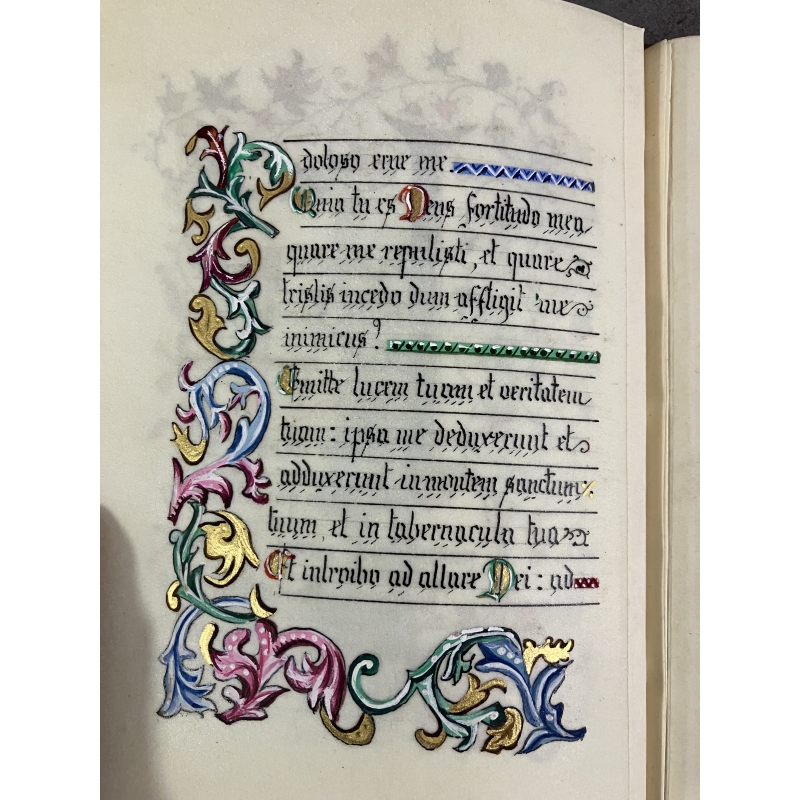 doloso erue me
Quia tu es Deus fortitudo mea
quare me repulisti, et quare
tristis incedo dum affligit me
inimicus?
Emitte lucem tuam et veritatem
tuam: ipsa me deduxerunt et
adduxerunt in montem sanctum
tuum, et in tabernacula tua
Et introibo ad altare Dei: ad